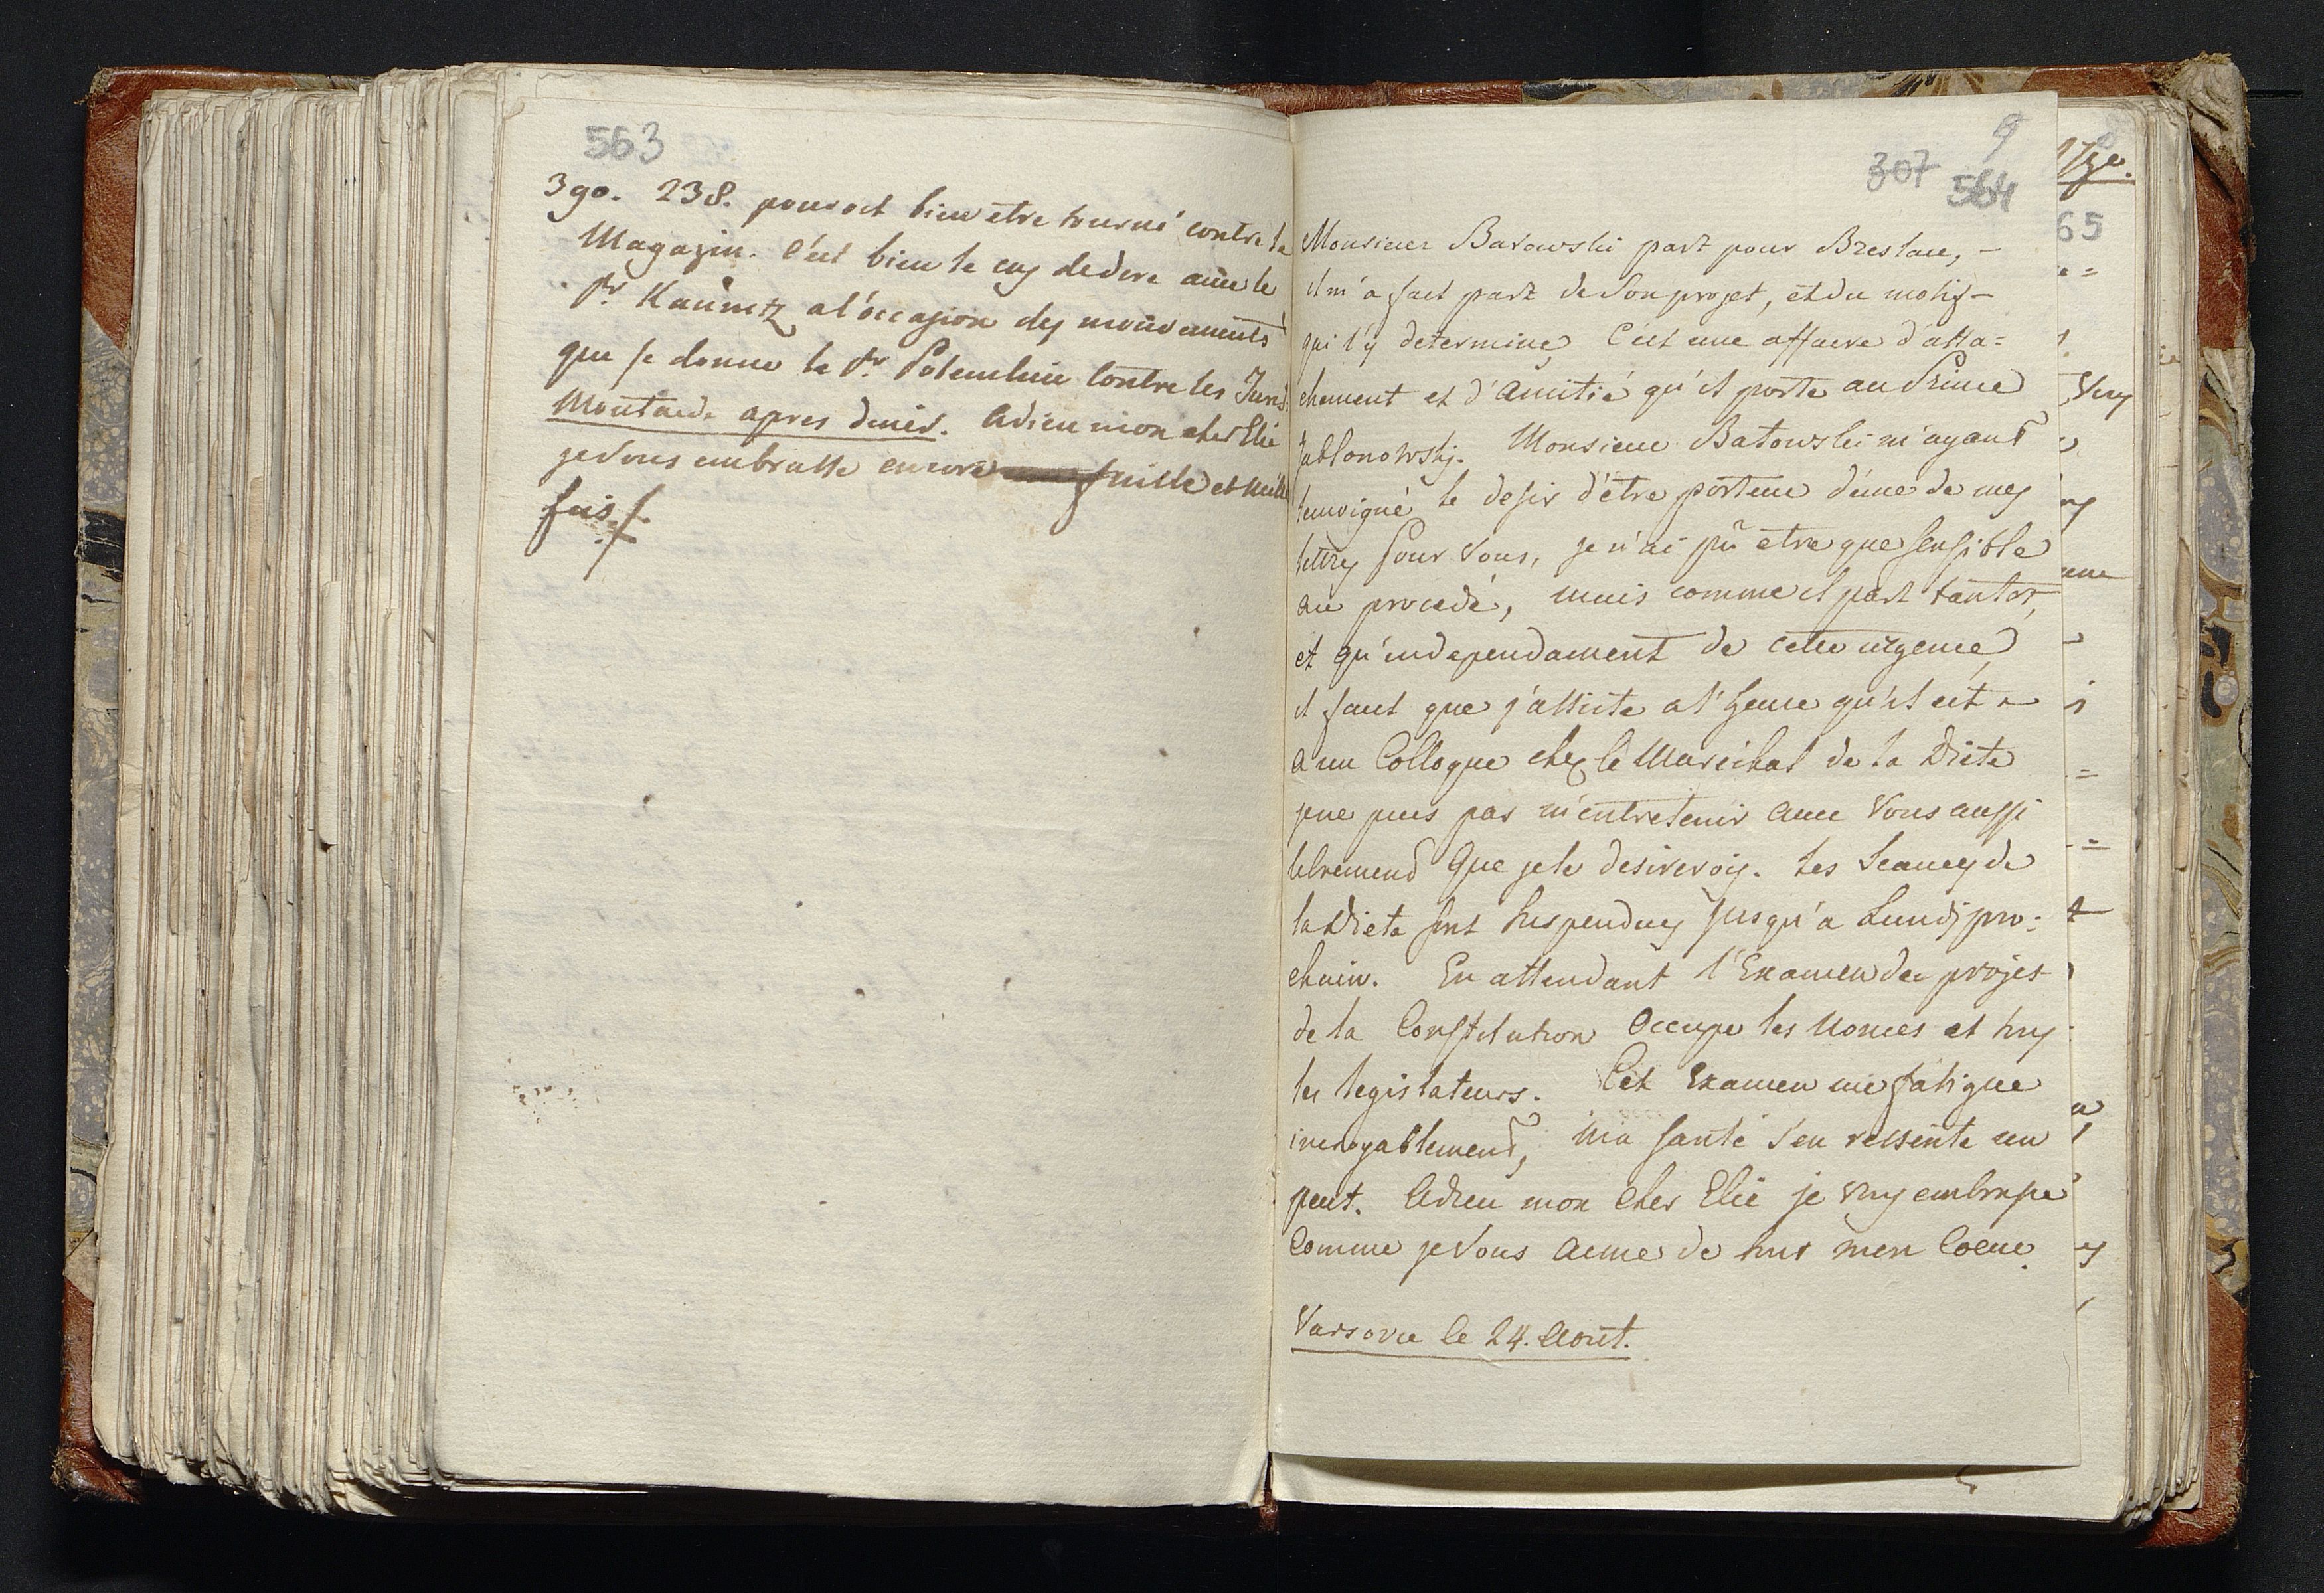 563
3go. 238. pouroit bien etre tourné contre la
Magazin. C'est bien le cas de dire avec le
Pr Kaunitz a l'occasion des mouvements
que se donne le Pr Potemkin contre les
Moutarde apres diner. Adieu mon cher Elie
je vous embrasse encore mille et mille
fois ./.
9
307 564
Monsieur Batowski part pour Breslau, -
il m'a fait part de Son projet, et du motif -
qui l'y determine, C'est une affaire d'atta=
chement et d'amitié qu'il porte au Prince
Jablonowsky. Monsieur Batowski m'ayant
temoigné le desir d'étre porteur d'une de mes
lettres pour Vous, je n'ai pû etre que sensible
au procedé, mais comme il part tantot,
et qu'independament de cette urgence
il faut que j'assiste a l'heure qu'il est -
a un Colloque chez le Maréchal de la Diete
je ne puis pas m'entretenir avec Vous aussi
librement Que je le desirerois. Les Seances de
la Diete sont suspendues jusqu'a Lundj pro=
chain. En attendant l'Examen du projet
de la Constitution Occupe les Nonces et tous
les legislateurs. Cet Examen me fatigue
incroyablement, Ma santé s'en ressente un
peut. Adieu mon cher Elie je vous embrasse
Comme je Vous aime de tout mon Coeur.
Varsovie le 24. Aout.
65